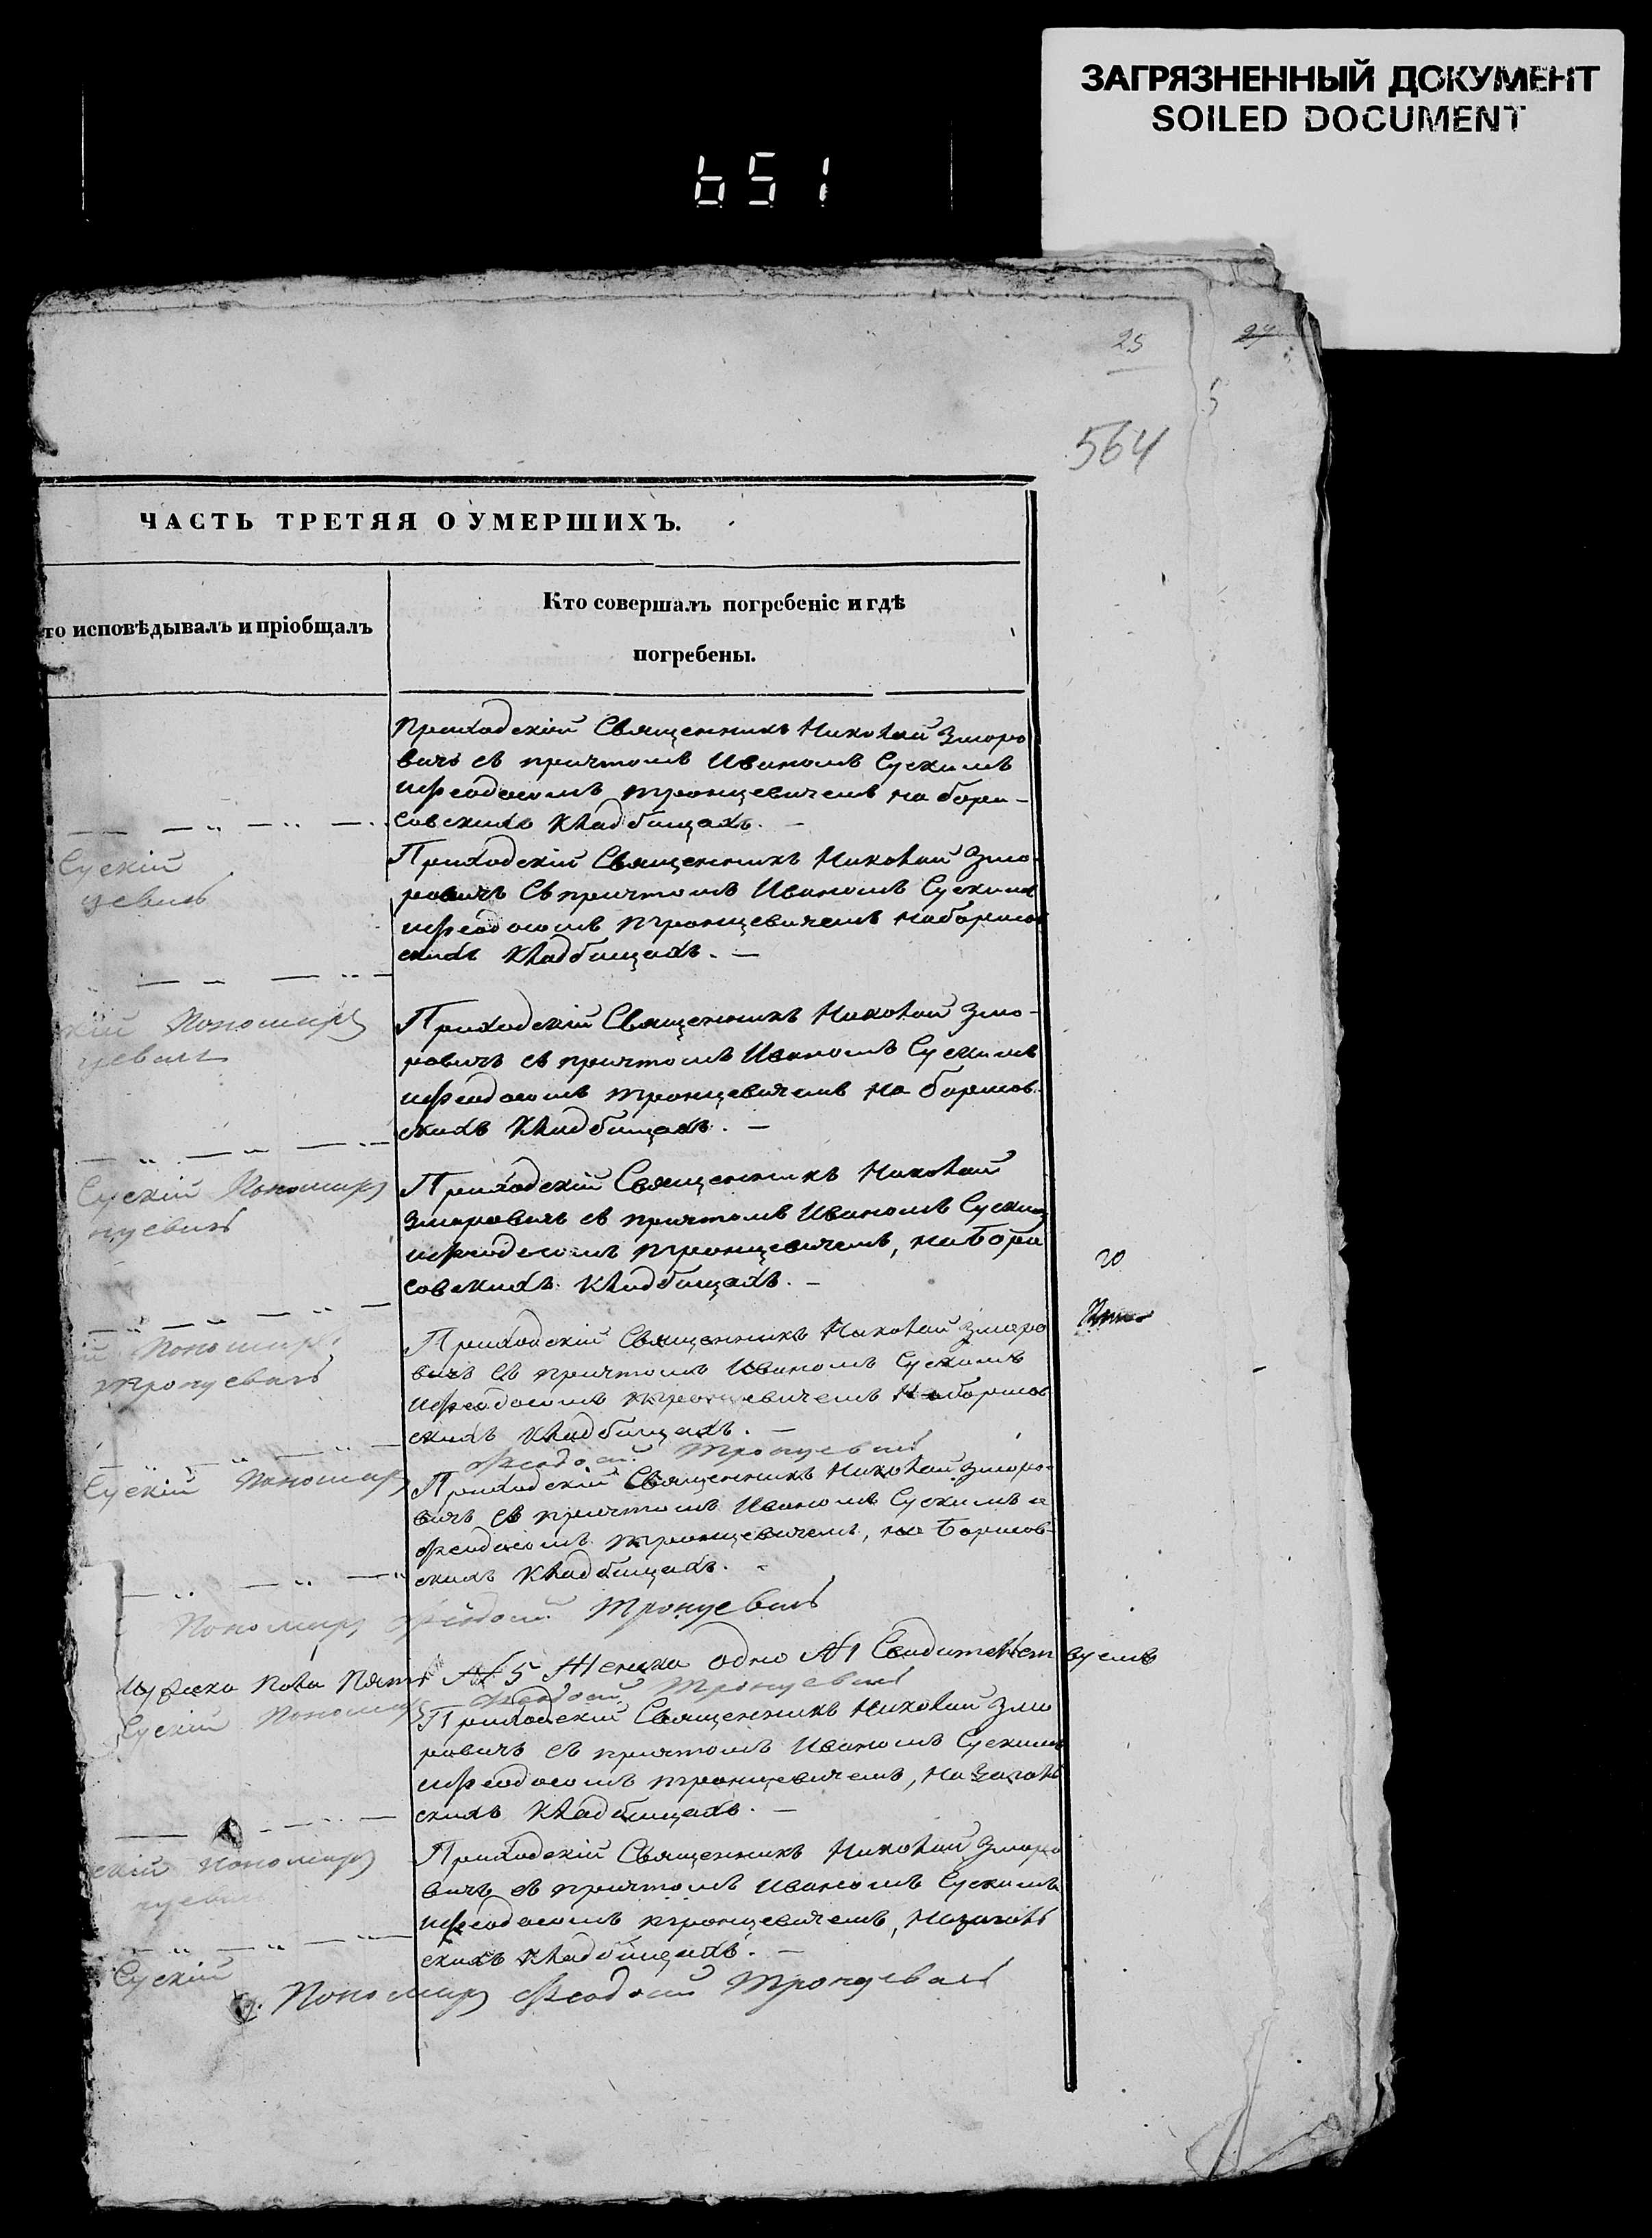 ЗАГРЯЗНЕННЫЙ ДОКУМЕНТ
SOILED DOCUMENT
651
25
24
564
ЧАСТЬ ТРЕТЯЯ О УМЕРШИХЪ.
то исповѣдывалъ и пріобщалъ
Кто совершалъ погребеніе и гдѣ
погребены.
Приходскій Священникъ Николай Зморо
вичъ съ причтомъ Иваномъ Сускимъ
иѲеодосомъ Тронцевичемъ на Бори-
совскихъ Кладбищахъ. —
Сускій
цевичъ
Приходскій Священникъ Николай Змо-
ровичъ съ причтомъ Иваномъ Сускимъ
иѲеодосомъ Тронцевичемъ на Борисов
скихъ Кладбищахъ. —
кій Пономарь
цевичъ
Приходскій Священникъ Николай Змо-
ровичъ съ причтомъ Иваномъ Сускимъ
иѲеодосомъ Тронцевичемъ на Борисов
скихъ Кладбищахъ. —
Сускій Пономарь
нцевичъ
Приходскій Священникъ Николай
Зморовичъ съ причтомъ Иваномъ Сускимъ
иѲеодосомъ Тронцевичемъ, на Бори
совскихъ Кладбищахъ. —
20
й Пономарь
Тронцевичъ
Приходскій Священникъ Николай Зморо
вичъ съ причтомъ Иваномъ Сускимъ
иѲеодосомъ Тронцевичемъ на Борисов
скихъ Кладбищахъ. —
Сускій Пономарь Ѳеодосій Тронцевичъ
Приходскій Священникъ Николай Зморо-
вичъ съ причтомъ Иваномъ Сускимъ и
Ѳеодосомъ Тронцевичемъ, на Борисов-
скихъ Кладбищахъ.
Пономарь Ѳеодосій Тронцевичъ
Мужеска пола Пять №5 Женска одно №1 Свидителствуемъ
Сускій Пономарь Ѳеодосій Тронцевичъ
Приходскій Священникъ Николай Змо
ровичъ съ причтомъ Иваномъ Сускимъ
иѲеодосомъ Тронцевичемъ, на
скихъ Кладбищахъ. —
скій Пономарь
Приходскій Священникъ Николай Зморо
вичъ съ причтомъ Иваномъ Сускимъ
иѲеодосомъ Тронцевичемъ,
скихъ Кладбищахъ. —
Сускій
Пономарь Ѳеодосій Тронцевичъ